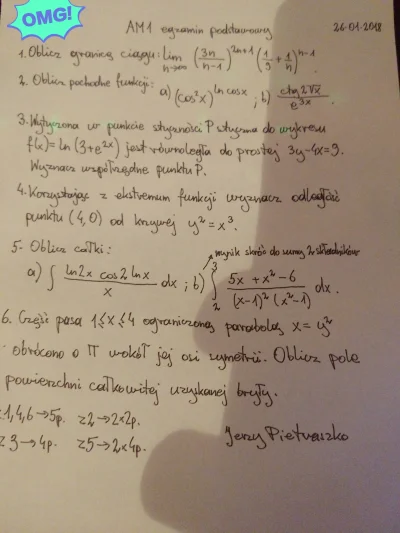 OMG!
AM1 egzamin podstawowy 26-01-2018
1. Oblicz granicę ciągu: lim n→∞ (3n/(n-1))^(2n+1) (1/9 + 1/n)^(n-1)
2. Oblicz pochodne funkcji: a) (cos²x)^(ln cosx) ; b) ctg2√x / e^(3x) .
3. Wytyczona w punkcie styczności P styczna do wykresu
f(x) = ln(3+e^(2x)) jest równoległa do prostej 3y-4x=9.
Wyznacz współrzędne punktu P.
4. Korzystając z ekstremum funkcji wyznacz odległość
punktu (4,0) od krzywej y²=x³.
5. Oblicz całki: wynik skróć do sumy 2 składników
a) ∫ (ln2x cos2lnx)/x dx ; b) ∫₂³ (5x+x²-6)/((x-1)²(x²-1)) dx .
6. Część pasa 1≤x≤4 ograniczoną parabolą x=y²
obrócono o π wokół jej osi symetrii. Oblicz pole
powierzchni całkowitej uzyskanej bryły.
z1,4,6→5p. z2→2×2p.
z3→4p. z5→2×4p. Jerzy Pietraszko